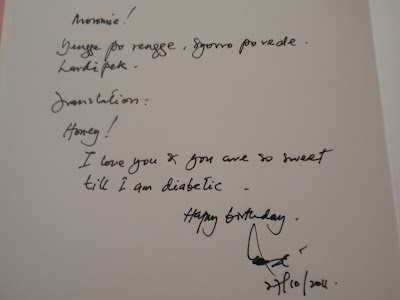 Moromie!
Yengge po rengge, syorro po vede.
Lardipek.
Translation:
Honey!
I love you & you are so sweet
till I am diabetic.
Happy birthday.
27/10/2011.